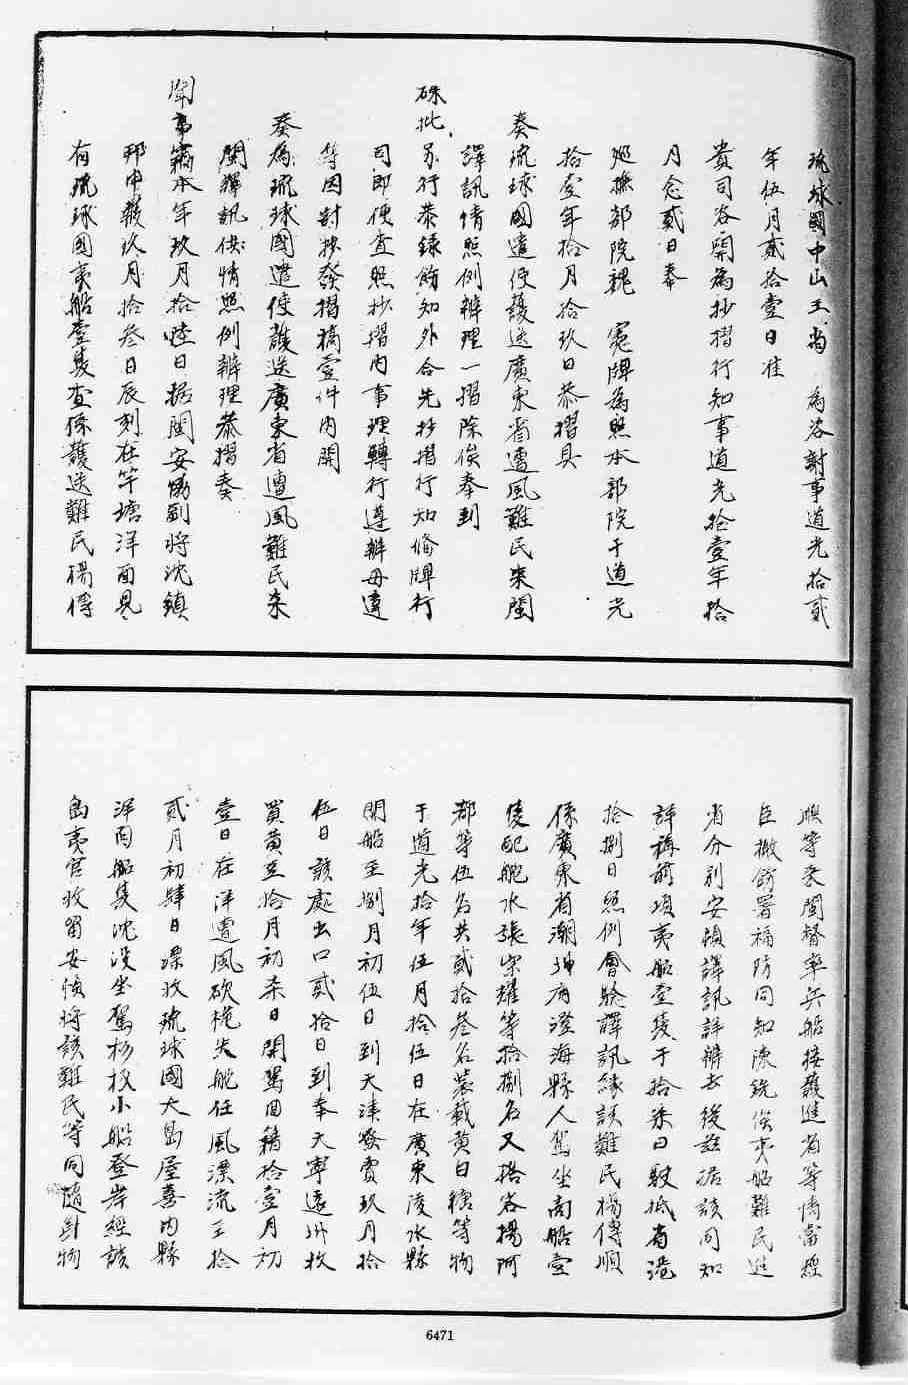 琉球國中山王尚　為咨謝事道光拾貳
年伍月貳拾壹日准
貴司咨開為抄摺行知事道光拾壹年拾
月念貳日奉
巡撫部院魏　憲牌為照本部院于道光
拾壹年拾月拾玖日恭摺具
奏琉球國遣使護送廣東省遭風難民來閩
譯訊情照例辦理一摺除俟奉到
硃批另行恭錄飭知外合先抄摺行知備牌行
司即便查照抄摺內事理轉行遵辦毋違
等因對抄發摺稿壹件內開
奏為琉球國遣使護送廣東省遭風難民來
閩譯訊供情照例辦理恭摺奏
聞事竊本年玖月拾陸日據閩安協副將沈鎮
邦申報玖月拾叁日辰刻在竿塘洋面見
有琉球國夷船壹隻查係護送難民楊傳
順等來閩督率兵船接護進省等情當經
臣檄飭署福防同知陳銑俟夷船難民進
省分別安頓譯訊詳辦去後茲據該同知
詳稱前項夷船壹隻于拾柒日駛抵省港
拾捌日照例會驗譯訊緣該難民楊傳順
係廣東省潮州府澄海縣人駕坐商船壹
隻配舵水張崇耀等拾捌名又搭客楊阿
都等伍名共貳拾叁名裝載黃白糖等物
于道光拾年伍月拾伍日在廣東陵水縣
開船至捌月初伍日到天津發賣玖月拾
伍日該處出口貳拾日到奉天寧遠州收
買黃豆拾月初柒日開駕回籍拾壹月初
壹日在洋遭風砍桅失舵任風漂流至拾
貳月初肆日漂收琉球國大島屋喜內縣
洋面船隻沈沒坐駕杉板小船登岸經該
島夷官收留安頓將該難民等同隨封物